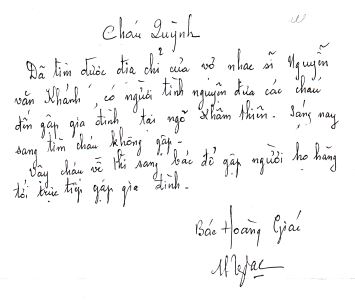 Cháu Quỳnh
Đã tìm được địa chỉ của vợ nhạc sĩ Nguyễn
văn Khánh, có người tình nguyện đưa các cháu
đến gặp gia đình tại ngõ Khâm thiên. Sáng nay
sang tìm cháu không gặp.
Vậy cháu về thì sang bác để gặp người họ hàng
tới trực tiếp gặp gia đình.
Bác Hoàng Giác